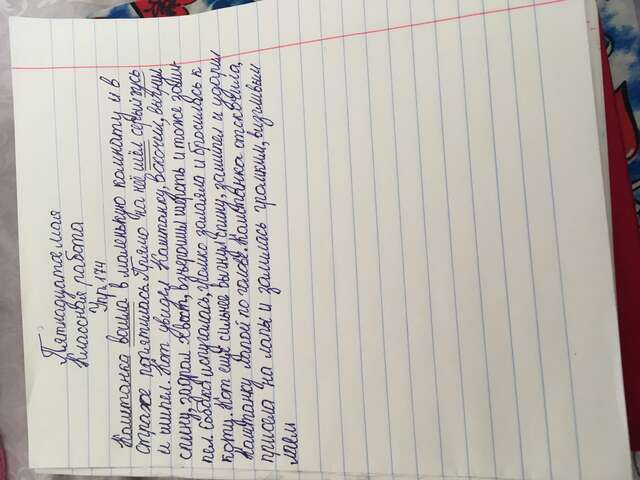 Пятнадцатае мая
Классная работа
Упр. 174
Каштанка вошла в маленькую комнату и в
страхе попятилась. Прямо на неё шёл серый гусь
и шипел. Кот увидел Каштанку, вскочил, выгнул
спину, задрал хвост, взъерошил шерсть и тоже зашип
пел. Собака испугалась, громко залаяла и бросилась к
коту. Кот ещё сильнее выгнул спину, зашипел и ударил
Каштанку лапой по голове. Каштанка отскочила,
присела на лапы и залилась громким, визгливым
лаем